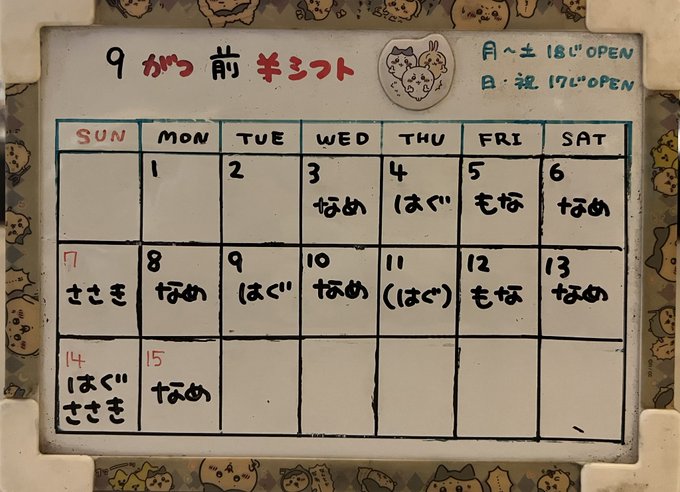 9 がつ 前 半シフト
月～土 18じOPEN
日・祝 17じOPEN
SUN MON TUE WED THU FRI SAT
1 2 3 4 5 6
なめ はぐ もな なめ
7 8 9 10 11 12 13
ささき なめ はぐ なめ (はぐ) もな なめ
14 15
はぐ なめ
ささき